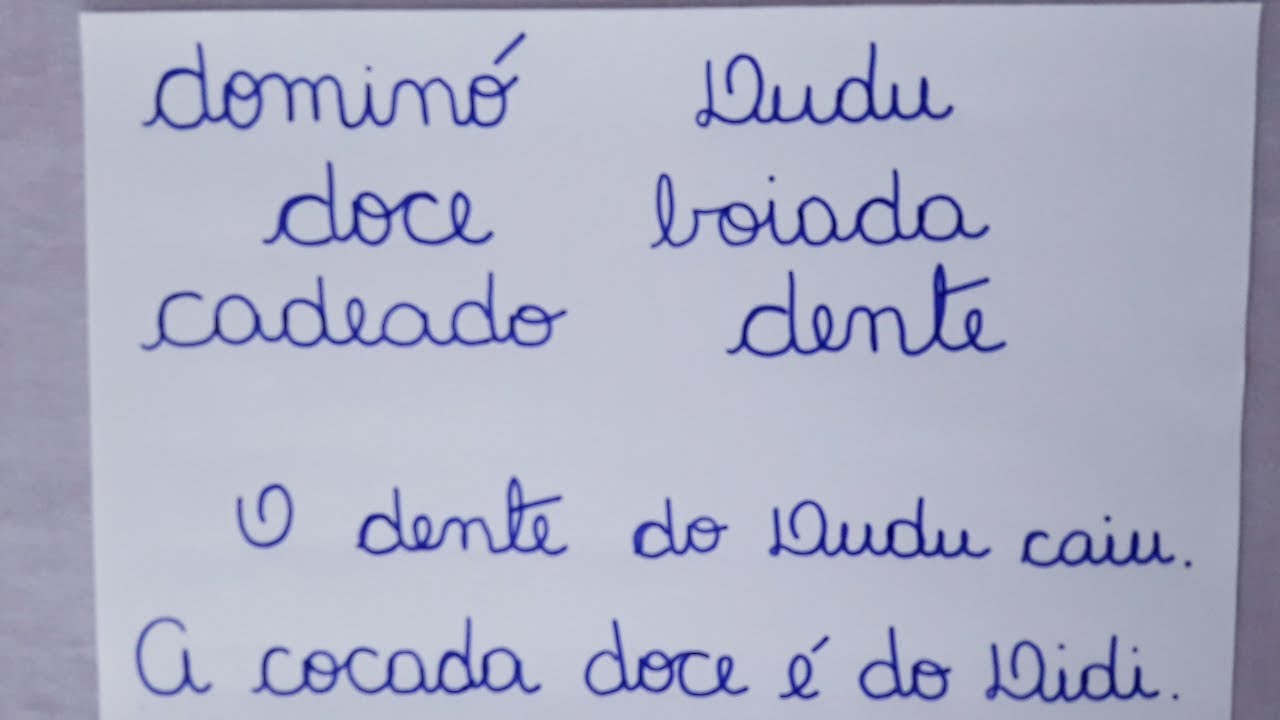 dominó Dudu
doce boiada
cadeado dente
O dente do Dudu caiu.
A cocada doce é do Didi.